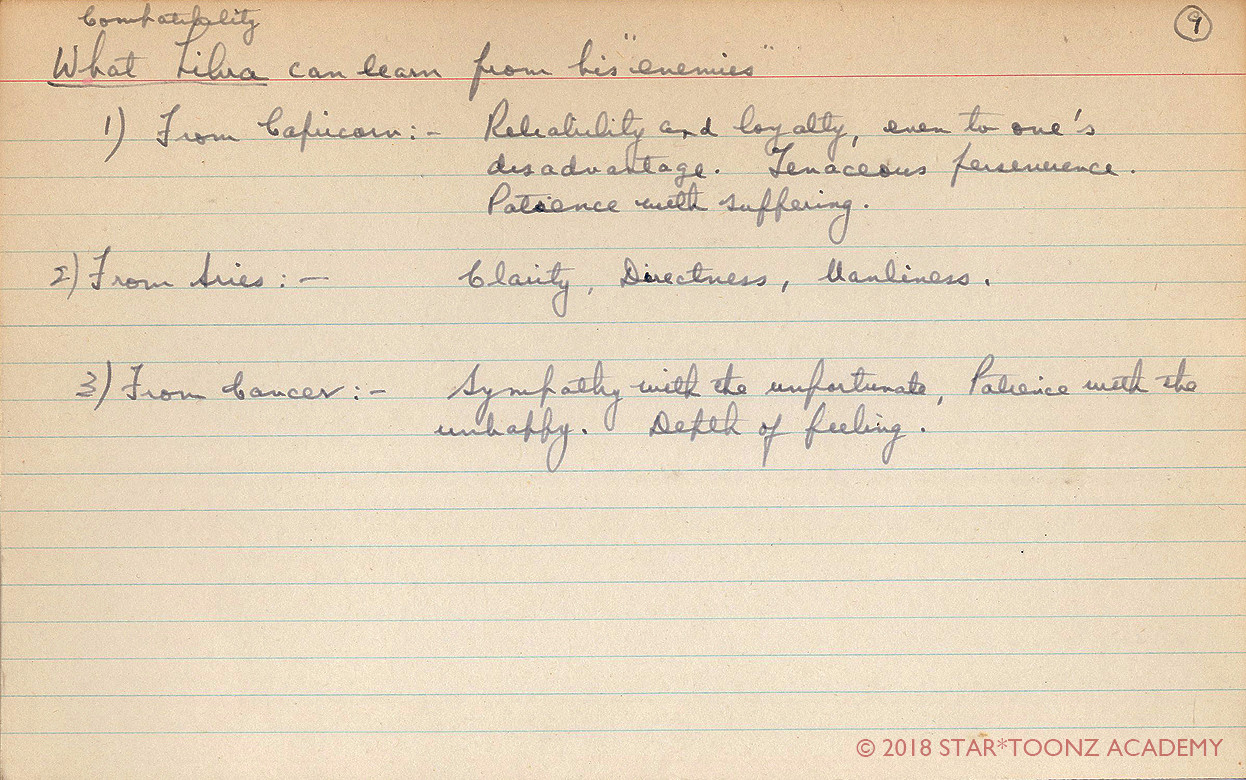 Compatibility
9
What Libra can learn from his "enemies"
1) From Capricorn:- Reliability and loyalty, even to one's
disadvantage. Tenaceous perseverence.
Patience with suffering.
2) From Aries:- Clarity, Directness, Manliness.
3) From Cancer:- Sympathy with the unfortunate, Patience with the
unhappy. Depth of feeling.
© 2018 STAR*TOONZ ACADEMY